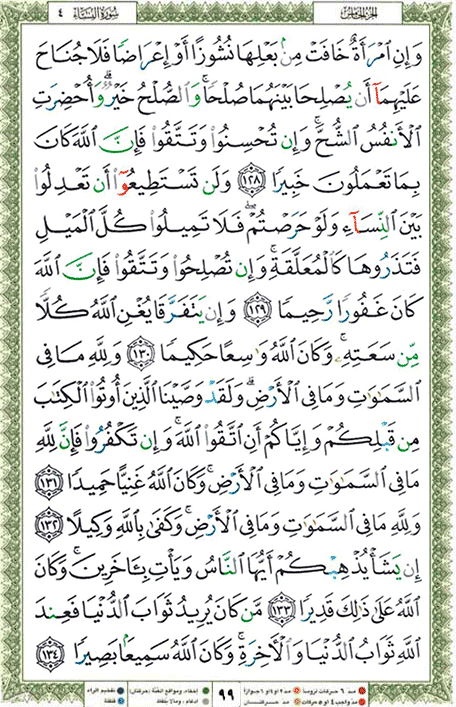 الجزء الخامس
سورة النساء
٤
وَإِنِ ٱمْرَأَةٌ خَافَتْ مِنۢ بَعْلِهَا نُشُوزًا أَوْ إِعْرَاضًا فَلَا جُنَاحَ
عَلَيْهِمَآ أَن يُصْلِحَا بَيْنَهُمَا صُلْحًا ۚ وَٱلصُّلْحُ خَيْرٌ ۗ وَأُحْضِرَتِ
ٱلْأَنفُسُ ٱلشُّحَّ ۚ وَإِن تُحْسِنُوا۟ وَتَتَّقُوا۟ فَإِنَّ ٱللَّهَ كَانَ
بِمَا تَعْمَلُونَ خَبِيرًا ١٢٨ وَلَن تَسْتَطِيعُوٓا۟ أَن تَعْدِلُوا۟
بَيْنَ ٱلنِّسَآءِ وَلَوْ حَرَصْتُمْ ۖ فَلَا تَمِيلُوا۟ كُلَّ ٱلْمَيْلِ
فَتَذَرُوهَا كَٱلْمُعَلَّقَةِ ۚ وَإِن تُصْلِحُوا۟ وَتَتَّقُوا۟ فَإِنَّ ٱللَّهَ
كَانَ غَفُورًا رَّحِيمًا ١٢٩ وَإِن يَتَفَرَّقَا يُغْنِ ٱللَّهُ كُلًّا
مِّن سَعَتِهِۦ ۚ وَكَانَ ٱللَّهُ وَٰسِعًا حَكِيمًا ١٣٠ وَلِلَّهِ مَا فِى
ٱلسَّمَٰوَٰتِ وَمَا فِى ٱلْأَرْضِ ۗ وَلَقَدْ وَصَّيْنَا ٱلَّذِينَ أُوتُوا۟ ٱلْكِتَٰبَ
مِن قَبْلِكُمْ وَإِيَّاكُمْ أَنِ ٱتَّقُوا۟ ٱللَّهَ ۚ وَإِن تَكْفُرُوا۟ فَإِنَّ لِلَّهِ
مَا فِى ٱلسَّمَٰوَٰتِ وَمَا فِى ٱلْأَرْضِ ۚ وَكَانَ ٱللَّهُ غَنِيًّا حَمِيدًا ١٣١
وَلِلَّهِ مَا فِى ٱلسَّمَٰوَٰتِ وَمَا فِى ٱلْأَرْضِ ۚ وَكَفَىٰ بِٱللَّهِ وَكِيلًا ١٣٢
إِن يَشَأْ يُذْهِبْكُمْ أَيُّهَا ٱلنَّاسُ وَيَأْتِ بِـَٔاخَرِينَ ۚ وَكَانَ
ٱللَّهُ عَلَىٰ ذَٰلِكَ قَدِيرًا ١٣٣ مَّن كَانَ يُرِيدُ ثَوَابَ ٱلدُّنْيَا فَعِندَ
ٱللَّهِ ثَوَابُ ٱلدُّنْيَا وَٱلْأَخِرَةِ ۚ وَكَانَ ٱللَّهُ سَمِيعًۢا بَصِيرًا ١٣٤
مد ٦ حركات لزوماً مد ٢ أو ٤ أو ٦ جوازاً
إخفاء، ومواقع الغنة (حركتان) تفخيم الراء
٩٩
مد واجب ٤ أو ٥ حركات مد حركتان
إدغام، وما لا يلفظ قلقلة